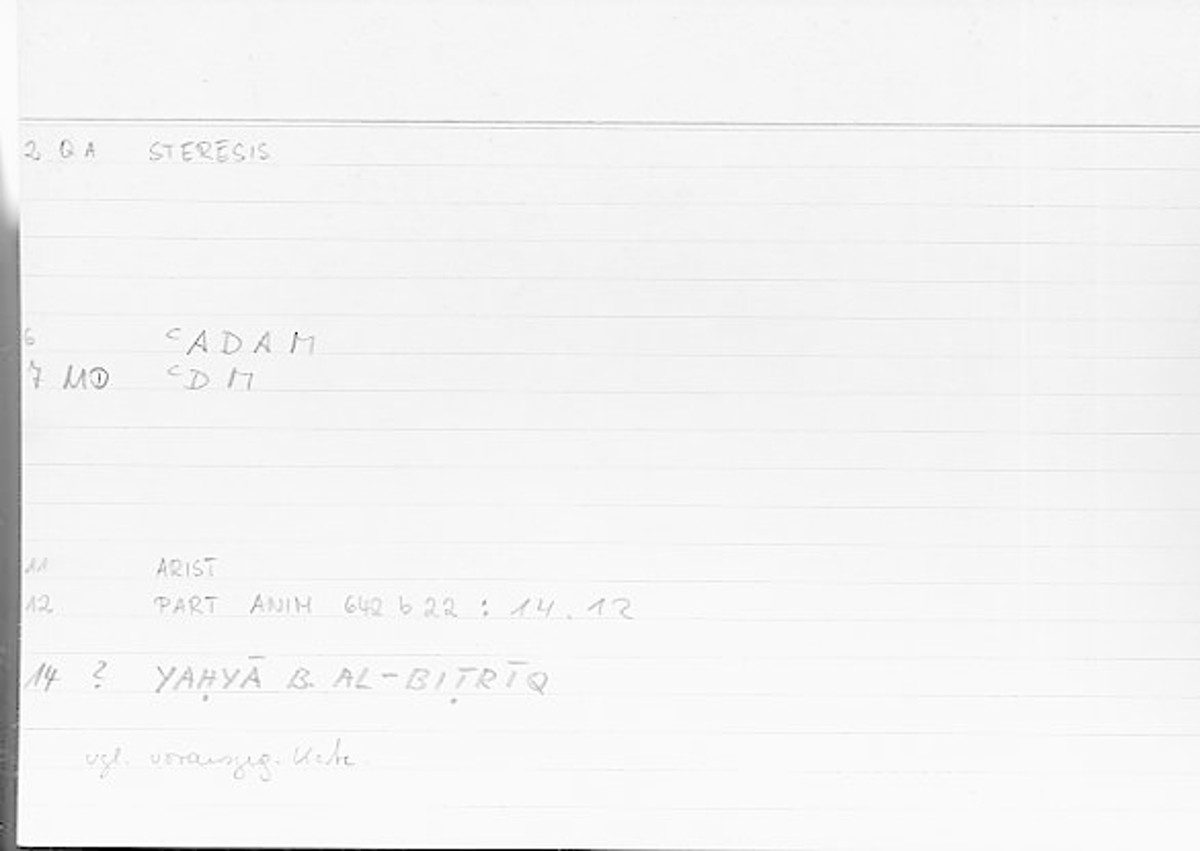 2 Q A STERĒSIS
6 ᶜADAM
7 M① ᶜDM
11 ARIST
12 PART ANIM 642 b 22 : 14.12
14 ? YAḤYĀ B. AL-BIṬRĪQ
vgl. vorangeg. Karte